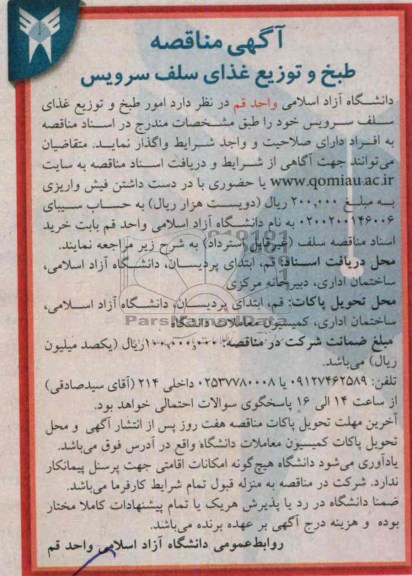 آگهی مناقصه
طبخ و توزیع غذای سلف سرویس
دانشگاه آزاد اسلامی واحد قم در نظر دارد امور طبخ و توزیع غذای
سلف سرویس خود را طبق مشخصات مندرج در اسناد مناقصه
به افراد دارای صلاحیت و واجد شرایط واگذار نمایند. متقاضیان
می‌توانند جهت آگاهی از شرایط و دریافت اسناد مناقصه به سایت
www.qomiau.ac.ir یا حضوری با در دست داشتن فیش واریزی
به مبلغ ۲۰۰,۰۰۰ ریال (دویست هزار ریال) به حساب سیبای
۰۲۰۰۲۰۰۱۴۶۰۰۶ به نام دانشگاه آزاد اسلامی واحد قم بابت خرید
اسناد مناقصه سلف (غیرقابل استرداد) به شرح زیر مراجعه نمایند.
محل دریافت اسناد: قم، ابتدای پردیسان، دانشگاه آزاد اسلامی،
ساختمان اداری، دبیرخانه مرکزی
محل تحویل پاکات: قم، ابتدای پردیسان، دانشگاه آزاد اسلامی،
ساختمان اداری، کمیسیون معاملات دانشگاه
مبلغ ضمانت شرکت در مناقصه: ۱۰۰,۰۰۰,۰۰۰ ریال (یکصد میلیون
ریال) می‌باشد.
تلفن: ۰۹۱۲۷۴۶۲۵۸۹ یا ۰۲۵۳۷۷۸۰۰۰۸ داخلی ۲۱۴ (آقای سیدصادقی)
از ساعت ۱۴ الی ۱۶ پاسخگوی سوالات احتمالی خواهد بود.
آخرین مهلت تحویل پاکات مناقصه هفت روز پس از انتشار آگهی و محل
تحویل پاکات کمیسیون معاملات دانشگاه واقع در آدرس فوق می‌باشد.
یادآوری می‌شود دانشگاه هیچ‌گونه امکانات اقامتی جهت پرسنل پیمانکار
ندارد. شرکت در مناقصه به منزله قبول تمام شرایط کارفرما می‌باشد.
ضمنا دانشگاه در رد یا پذیرش هریک یا تمام پیشنهادات کاملا مختار
بوده و هزینه درج آگهی بر عهده برنده می‌باشد.
روابط‌عمومی دانشگاه آزاد اسلامی واحد قم
ParsNamadData